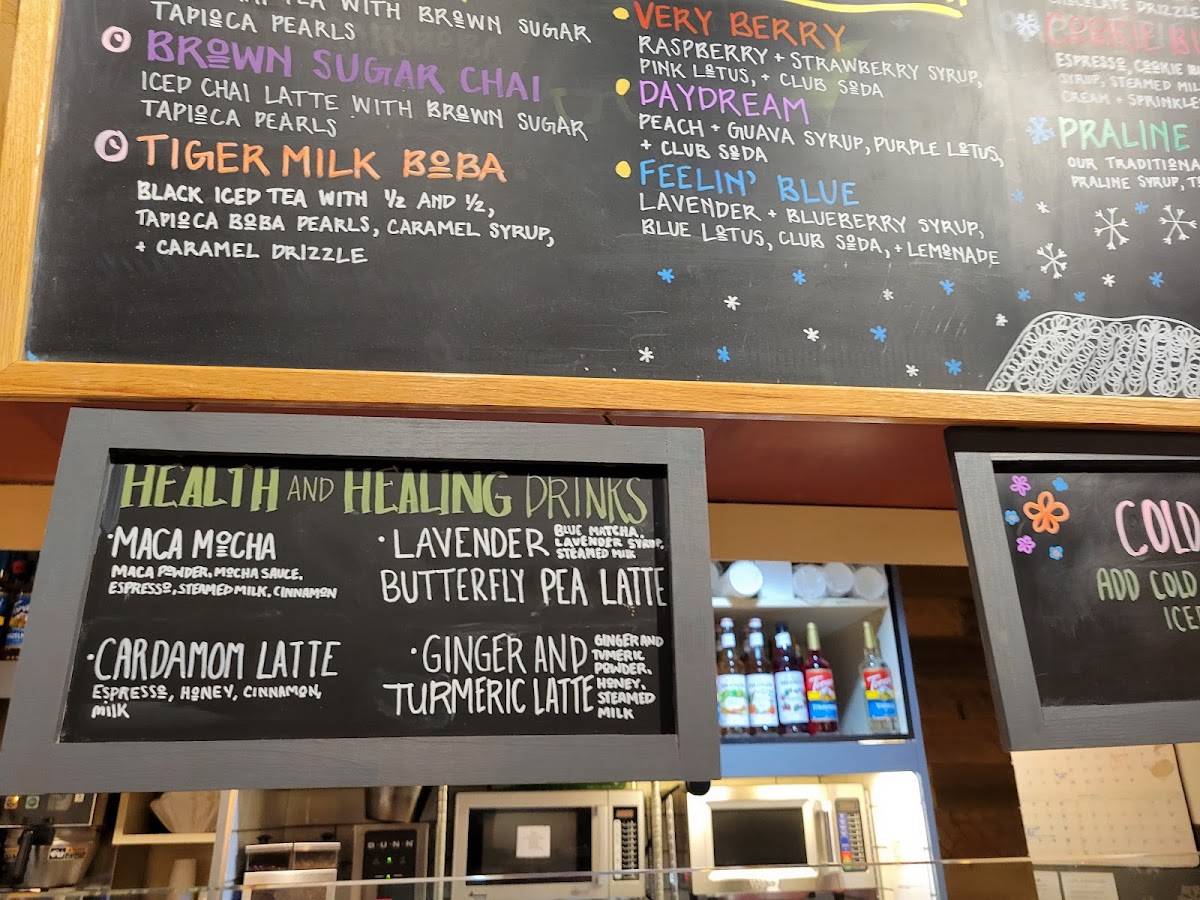 TEA WITH BROWN SUGAR
TAPIOCA PEARLS
BROWN SUGAR CHAI
ICED CHAI LATTE WITH BROWN SUGAR
TAPIOCA PEARLS
TIGER MILK BOBA
BLACK ICED TEA WITH ½ AND ½,
TAPIOCA BOBA PEARLS, CARAMEL SYRUP,
+ CARAMEL DRIZZLE
VERY BERRY
RASPBERRY + STRAWBERRY SYRUP,
PINK LOTUS, + CLUB SODA
DAYDREAM
PEACH + GUAVA SYRUP, PURPLE LOTUS,
+ CLUB SODA
FEELIN' BLUE
LAVENDER + BLUEBERRY SYRUP,
BLUE LOTUS, CLUB SODA, + LEMONADE
CHOCOLATE DRIZZLE
COOKIE
ESPRESSO, COOKIE
SYRUP, STEAMED
CREAM + SPRINKLE
PRALINE
OUR
PRALINE SYRUP,
HEALTH AND HEALING DRINKS
·MACA MOCHA
MACA POWDER, MOCHA SAUCE,
ESPRESSO, STEAMED MILK, CINNAMON
·CARDAMOM LATTE
ESPRESSO, HONEY, CINNAMON,
MILK
·LAVENDER
BUTTERFLY PEA LATTE
BLUE MATCHA,
LAVENDER SYRUP,
STEAMED MILK
·GINGER AND
TURMERIC LATTE
GINGER AND
TUMERIC
POWDER,
HONEY,
STEAMED
MILK
COLD
ADD COLD
BUNN
Torani